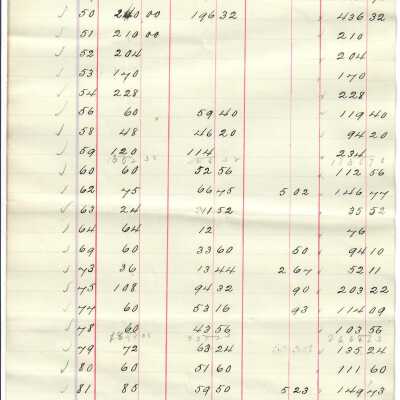 ✓ 50 240 00 196 32 436 32
✓ 51 210 00 210
✓ 52 204 204
✓ 53 170 170
✓ 54 228 228
✓ 56 60 59 40 119 40
✓ 58 48 46 20 94 20
✓ 59 120 114 234
✓ 60 60 52 56 112 56
✓ 62 75 66 75 5 02 146 77
✓ 63 24 11 52 35 52
✓ 64 64 12 76
✓ 69 60 33 60 50 94 10
✓ 73 36 13 44 2 67 52 11
✓ 75 108 94 32 90 203 22
✓ 77 60 53 16 93 114 09
✓ 78 60 43 56 103 56
✓ 79 72 63 24 135 24
✓ 80 60 51 60 111 60
✓ 81 85 59 50 5 23 149 73